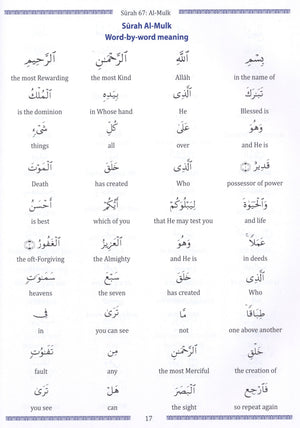 Sūrah 67: Al-Mulk
Sūrah Al-Mulk
Word-by-word meaning
بِسْمِ ٱللَّهِ ٱلرَّحْمَـٰنِ ٱلرَّحِيمِ
in the name of Allāh the most Kind the most Rewarding
تَبَـٰرَكَ ٱلَّذِى بِيَدِهِ ٱلْمُلْكُ
Blessed is He in Whose hand is the dominion
وَهُوَ عَلَىٰ كُلِّ شَىْءٍ
and He is over all things
قَدِيرٌ ١ ٱلَّذِى خَلَقَ ٱلْمَوْتَ
possessor of power Who has created Death
وَٱلْحَيَوٰةَ لِيَبْلُوَكُمْ أَيُّكُمْ أَحْسَنُ
and life that He may test you which of you is best
عَمَلًا ۚ وَهُوَ ٱلْعَزِيزُ ٱلْغَفُورُ ٢
in deeds and He is the Almighty the oft-Forgiving
ٱلَّذِى خَلَقَ سَبْعَ سَمَـٰوَٰتٍ
Who has created the seven heavens
طِبَاقًا ۖ مَّا تَرَىٰ فِى
one above another not you can see in
خَلْقِ ٱلرَّحْمَـٰنِ مِن تَفَـٰوُتٍ ۖ
the creation of the most Merciful any fault
فَٱرْجِعِ ٱلْبَصَرَ هَلْ تَرَىٰ
so repeat again the sight can you see
17